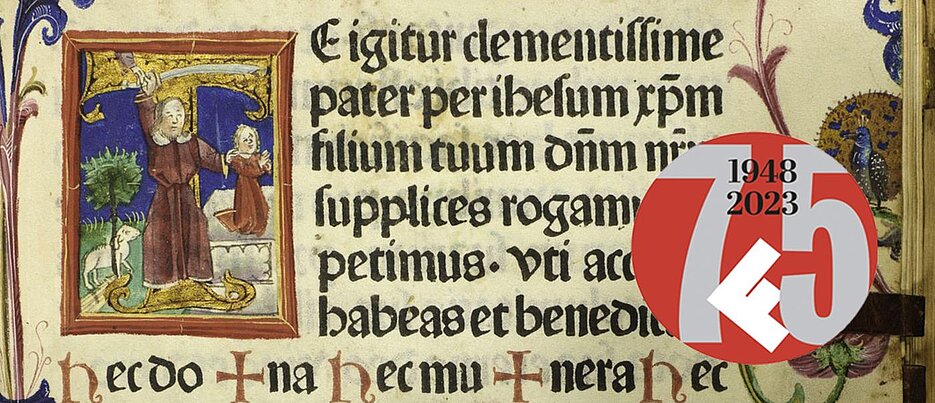 TE igitur clementiſſime
pater per iheſum xp̄m
filium tuum dn̄m nr̄
ſupplices rogamu
petimus · vti acc
habeas et benedi
hec do + na hec mu + nera hec
1948
2023
75
F